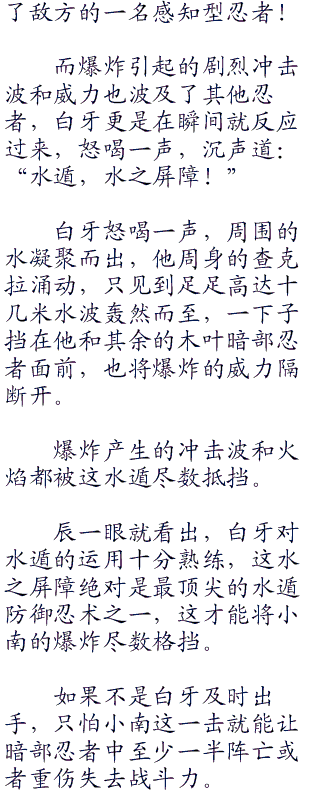 了敌方的一名感知型忍者！
而爆炸引起的剧烈冲击
波和威力也波及了其他忍
者，白牙更是在瞬间就反应
过来，怒喝一声，沉声道：
“水遁，水之屏障！”
白牙怒喝一声，周围的
水凝聚而出，他周身的查克
拉涌动，只见到足足高达十
几米水波轰然而至，一下子
挡在他和其余的木叶暗部忍
者面前，也将爆炸的威力隔
断开。
爆炸产生的冲击波和火
焰都被这水遁尽数抵挡。
辰一眼就看出，白牙对
水遁的运用十分熟练，这水
之屏障绝对是最顶尖的水遁
防御忍术之一，这才能将小
南的爆炸尽数格挡。
如果不是白牙及时出
手，只怕小南这一击就能让
暗部忍者中至少一半阵亡或
者重伤失去战斗力。